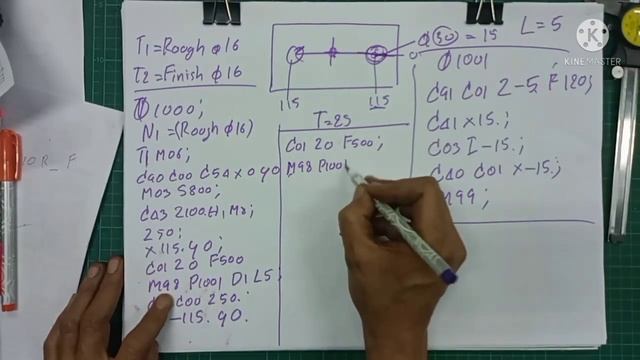 T1=Rough φ16
T2=Finish φ16
O1000;
N1=(Rough φ16)
T1 M06;
G90 G00 G54 X0 Y0
M03 S800;
G43 Z100.H1 M8;
Z50;
X115.Y0;
G01 Z0 F500
M98 P1001 D1 L5;
G00 Z50.
-115. Y0.
115
115
φ(30) = 15
L=5
T=25
G01 Z0 F500;
M98 P1001
O1001
G91 G01 Z-5. F120;
G41 X15.;
G03 I-15.;
G40 G01 X-15.;
M99;
OR_F
KINEMASTER